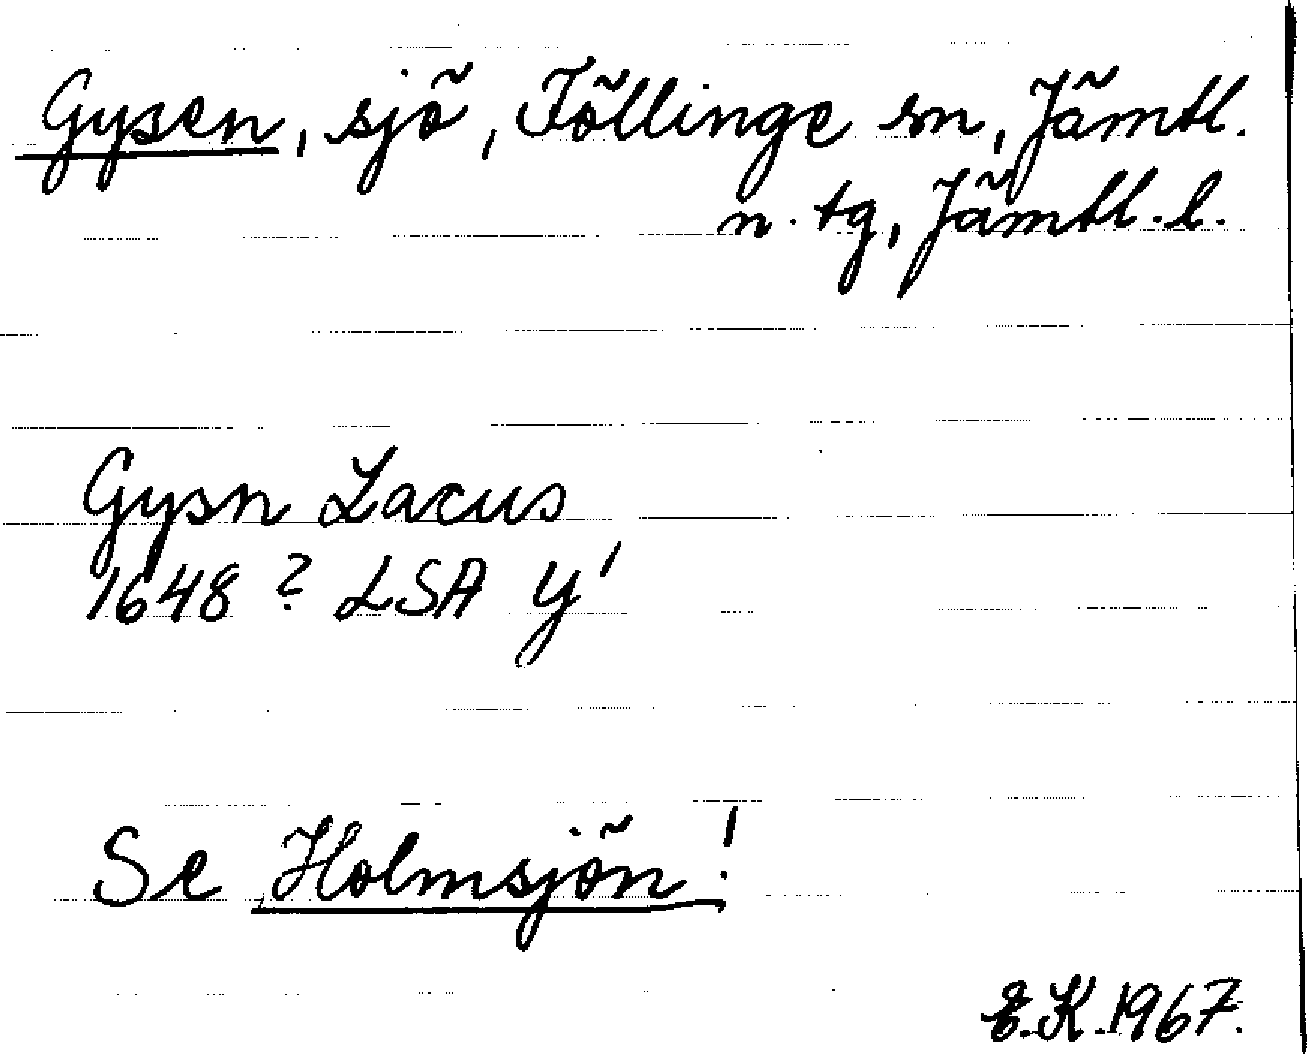 Gysen, sjö, Föllinge sn, Jämtl.
n. tg, Jämtl. l.
Gysn Lacus
1648 ? LSA y'
Se Holmsjön!
E.K. 1967.